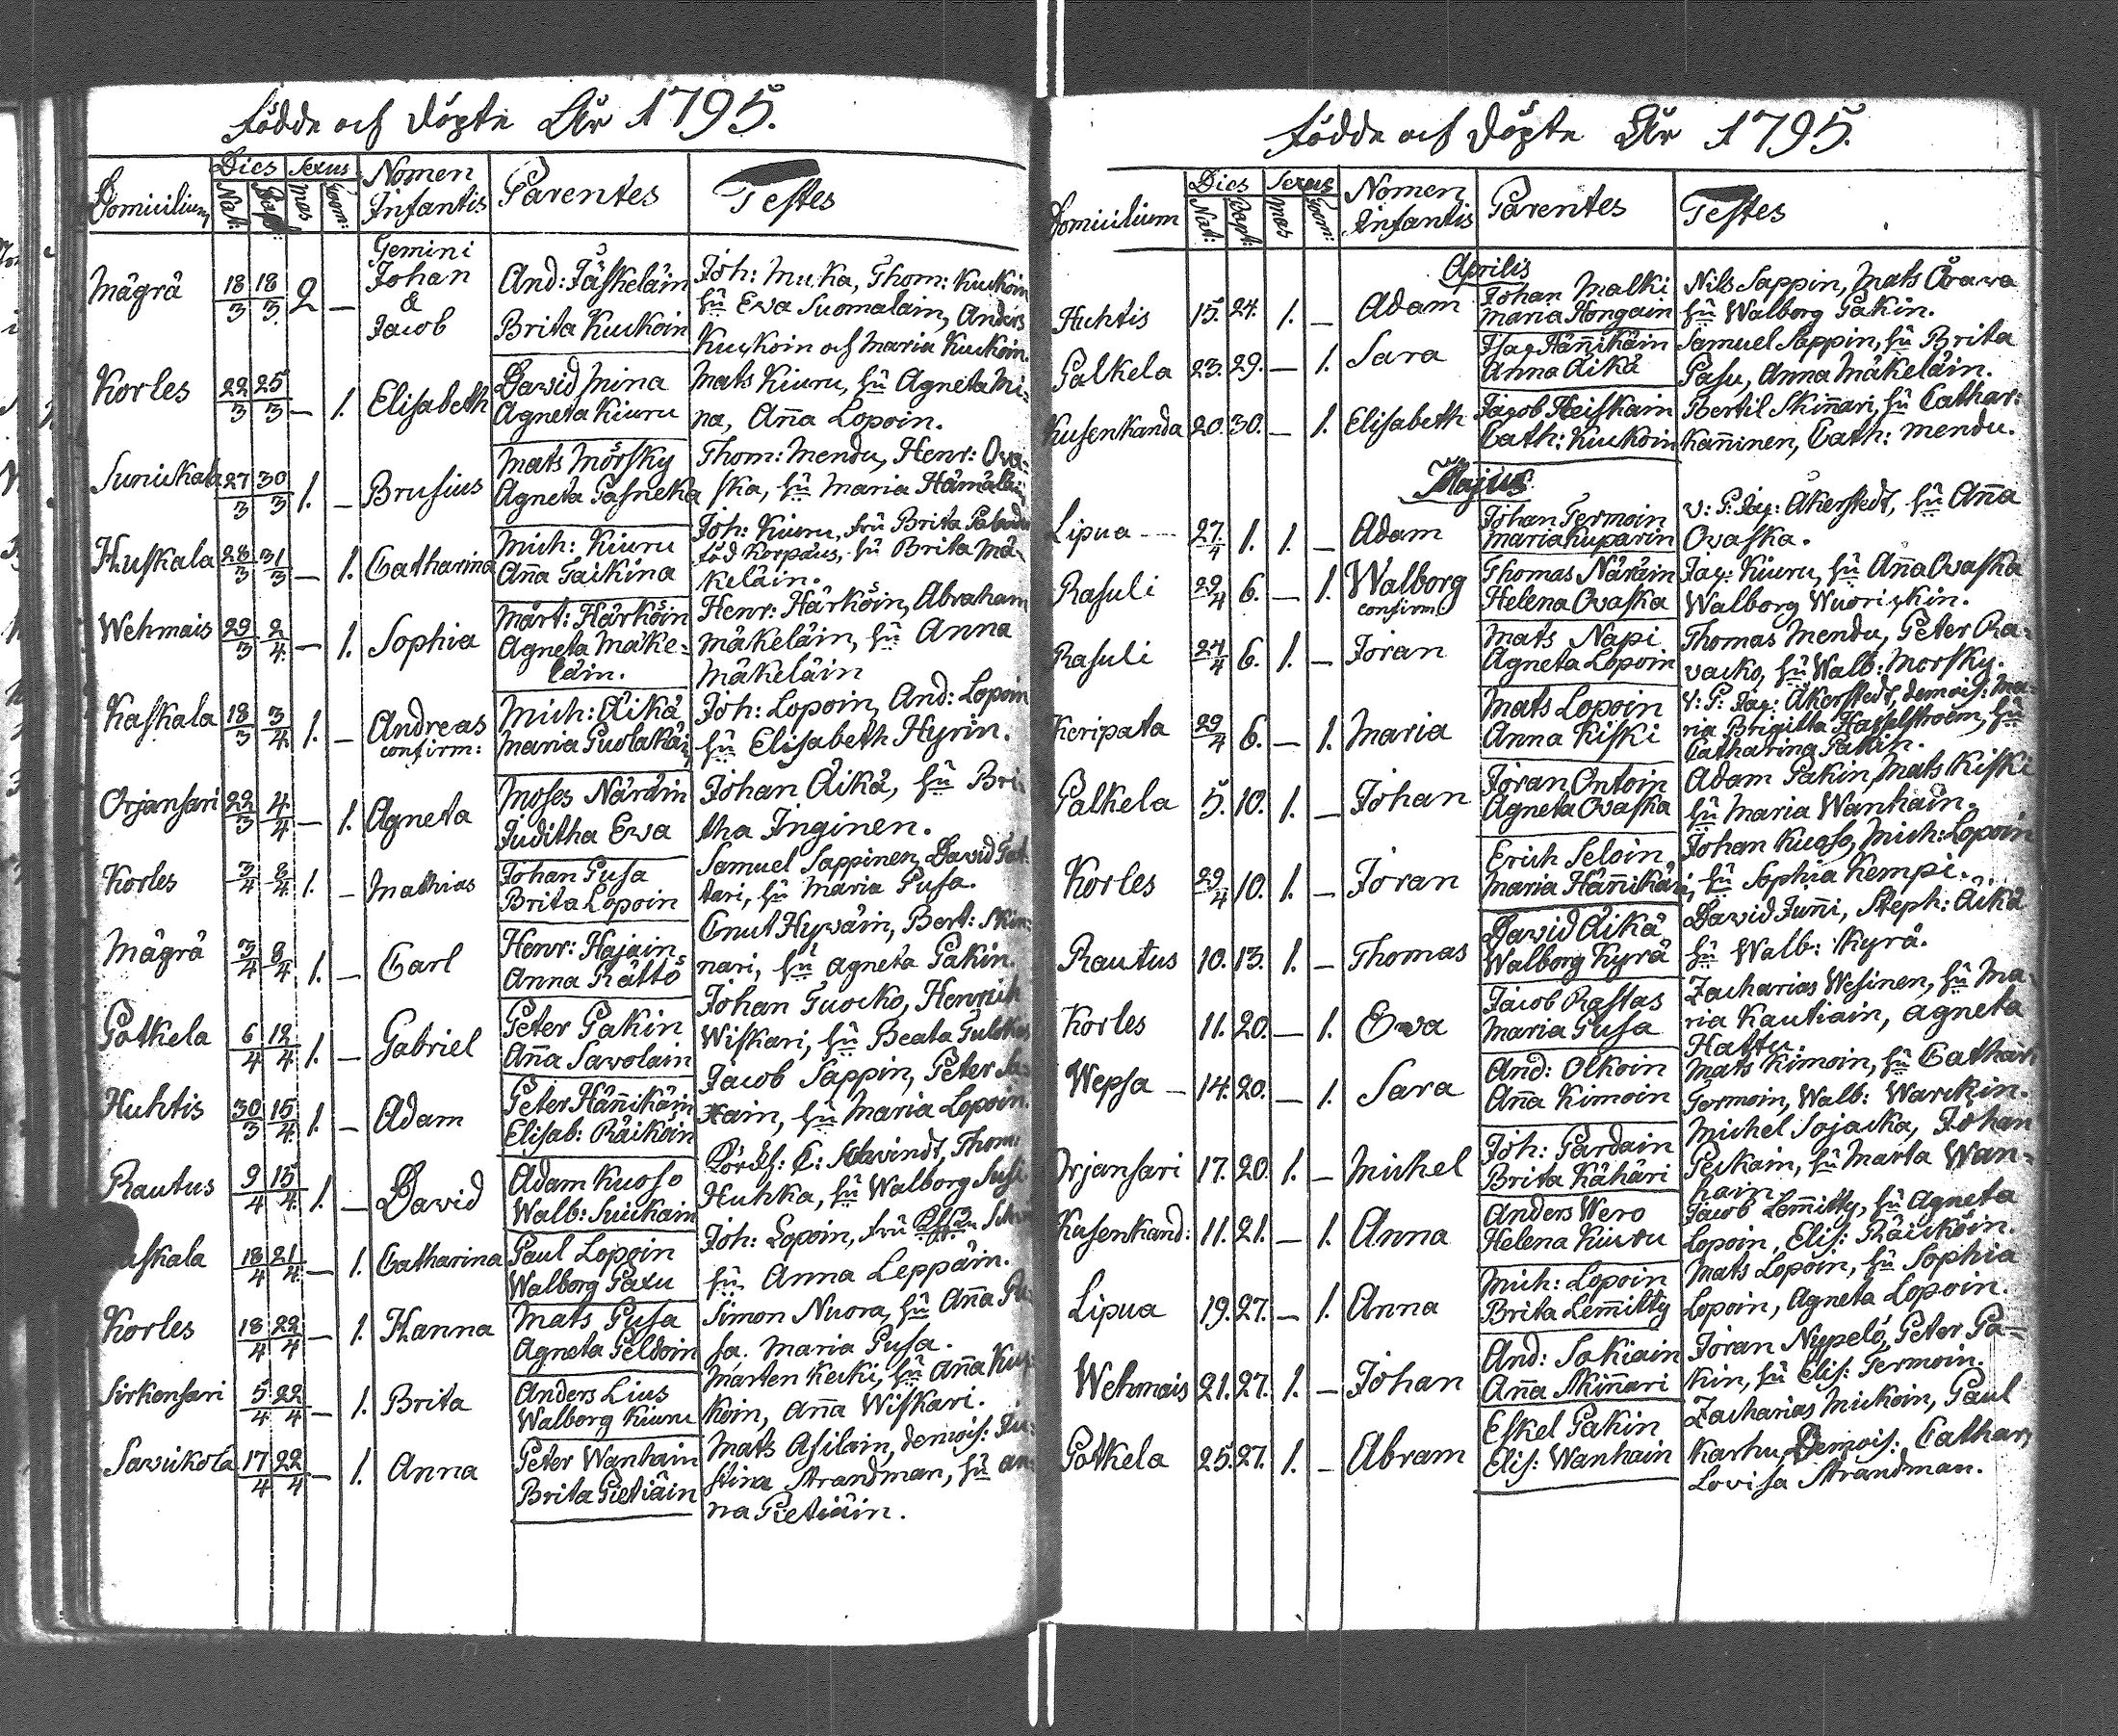 Födde och Döpte År 1795.
Domicilium Dies Sexus Nomen Infantis Parentes Testes
Nat: Bapt: Mas Foem:
Gemini
Mägrä 18/3 18/3 2 — Johan & Jacob
And: Jäskeläin
Brita Kuckoin
Joh: Mucka, Thom: Kuckoin
hu Ewa Suomalain, Anders
Kuckoin och Maria Kuckoin.
Korles 22/3 25/3 — 1. Elisabeth
David Mina
Agneta Kiuru
Mats Kiuru, hu Agneta Mi-
na, Anna Lopoin.
Sunickala 27/3 30/3 1. — Brusius
Mats Mörsky
Agneta Pasneka
Thom: Mendu, Henr: Ova-
ska, hu Maria Hämäläin
Huskala 28/3 31/3 — 1. Catharina
Mich: Kiuru
Anna Taikina
Joh: Kiuru, fru Brita
föd Korpæus, hu Brita Mä-
keläin.
Wehmais 29/3 2/4 — 1. Sophia
Mårt: Härköin
Agneta Mäke-
läin.
Henr: Härköin, Abraham
Mäkeläin, hu Anna
Mäkeläin
Kaskala 18/3 3/4 1. — Andreas
confirm:
Mich: Äikä
Maria Puolakäi
Joh: Lopoin, And: Lopoin
hu Elisabeth Hyrin.
Orjansari 22/3 4/4 — 1. Agneta
Moses Näräin
Juditha Ewa
Johan Äikä, hu Bri-
tha Inginen.
Korles 3/4 8/4 1. — Mathias
Johan Pusa
Brita Lopoin
Samuel Sappinen, David Pat-
tari, hu Maria Pusa.
Mägrä 3/4 8/4 1. — Carl
Henr: Hajain
Anna Rättö
Cnut Hyväin, Bert: Skin-
nari, hu Agneta Pakin.
Potkela 6/4 12/4 1. — Gabriel
Peter Pakin
Anna Savolain
Johan Tuocko, Henrich
Wiskari, hu Beata
Huhtis 30/3 15/4 1. — Adam
Peter Hännikäin
Elisab: Räiköin
Jacob Sappin, Peter
Hain, hu Maria Lopoin.
Rautus 9/4 15/4 1. — David
Adam Kuoso
Walb: Suickain
C: Schvindt, Thom:
Huhka, hu Walborg Susi
askala 18/4 21/4 — 1. Catharina
Paul Lopoin
Walborg Paxu
Joh: Lopoin, fru
hu Anna Leppäin.
Korles 18/4 22/4 — 1. Hanna
Mats Pusa
Agneta Peldoin
Simon Nuora, hu Anna Pu-
sa. Maria Pusa.
Sirkensari 5/4 22/4 — 1. Brita
Anders Lius
Walborg Kiuru
Mårten Kecki, hu Anna Kuc-
koin, Anna Wiskari.
Savickola 17/4 22/4 — 1. Anna
Peter Wanhain
Brita Pietiäin
Mats Asilain, demois: Ju-
stina Strandman, hu An-
na Pietiäin.
Födde och Döpte År 1795.
Domicilium Dies Sexus Nomen Infantis Parentes Testes
Nat: Bapt: Mas Foem:
Aprilis
Huhtis 15. 24. 1. — Adam
Johan Malki
Maria Hongain
Nils Sappin, Mats Orava
hu Walborg Pakin.
Palkela 23. 29. — 1. Sara
Isac Hännikäin
Anna Äikä
Samuel Sappin, hu Brita
Pasu, Anna Mäkeläin.
Kusenkanda 20. 30. — 1. Elisabeth
Jacob Heiskain
Cath: Kuckoin
Bertil Skinnari, hu Cathar:
Kanninen, Cath: Mendu.
Majus
Lipua 27/4 1. 1. — Adam
Johan Termoin
Maria Kuparin
V: P: Jac: Åkerstedt, hu Anna
Ovaska.
Rasuli 29/4 6. — 1. Walborg
confirm
Thomas Näräin
Helena Ovaska
Jac: Kiuru, hu Anna Ovaska
Walborg Wuorickin.
Rasuli 24/4 6. 1. — Jöran
Mats Napi
Agneta Lopoin
Thomas Mendu, Peter Ra-
vacko, hu Walb: Morsky.
Keripata 29/4 6. — 1. Maria
Mats Lopoin
Anna Kiski
V: P: Jac: Åkerstedt, demois: Ma-
ria Brigitta Hasselstroem, hu
Catharina Pakin.
Palkela 5. 10. 1. — Johan
Jöran Ontoin
Agneta Ovaska
Adam Pakin, Mats Kiski
hu Maria Wanhain.
Korles 29/4 10. 1. — Jöran
Erich Seloin
Maria Hännikäi
Johan Kuoso, Mich: Lopoin
hu Sophia Kempi.
Rautus 10. 13. 1. — Thomas
David Äikä
Walborg Kyrä
David Junni, Steph: Äikä
hu Walb: Kyrä.
Korles 11. 20. — 1. Ewa
Jacob Rastas
Maria Pusa
Zacharias Wesinen, hu Ma-
ria Kautiain, Agneta
Hattu.
Wepsa — 14. 20. — 1. Sara
And: Olkoin
Anna Kimoin
Mats Kimoin, hu Cathar:
Termoin, Walb: Warckin.
Orjansari 17. 20. 1. — Michel
Joh: Pardain
Brita Kähäri
Michel Sojacka, Johan
Peckain, hu Marta Wan-
hain
Kusenkand: 11. 21. — 1. Anna
Anders Wero
Helena Kiuru
Jacob Lemmitty, hu Agneta
Lopoin, Elis: Räicköin.
Lipua 19. 27. — 1. Anna
Mich: Lopoin
Brita Lemmitty
Mats Lopoin, hu Sophia
Lopoin, Agneta Lopoin.
Wehmais 21. 27. 1. — Johan
And: Sakiain
Anna Skinnari
Jöran Nypelö, Peter Pa-
kin, hu Elis: Termoin.
Potkela 25. 27. 1. — Abram
Eskel Pakin
Elis: Wanhain
Zacharias Mickoin, Paul
Karhu, Demois: Cathar:
Lovisa Strandman.